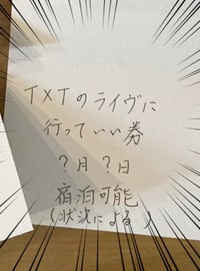 TXTのライヴに
行っていい券
?月?日
宿泊可能
(状況による)